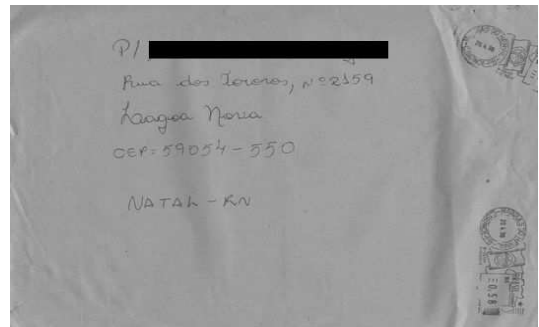 P/
Rua dos Tororos, Nº 2159
Laagoa Nova
CEP: 59054-550
NATAL - RN
0,58